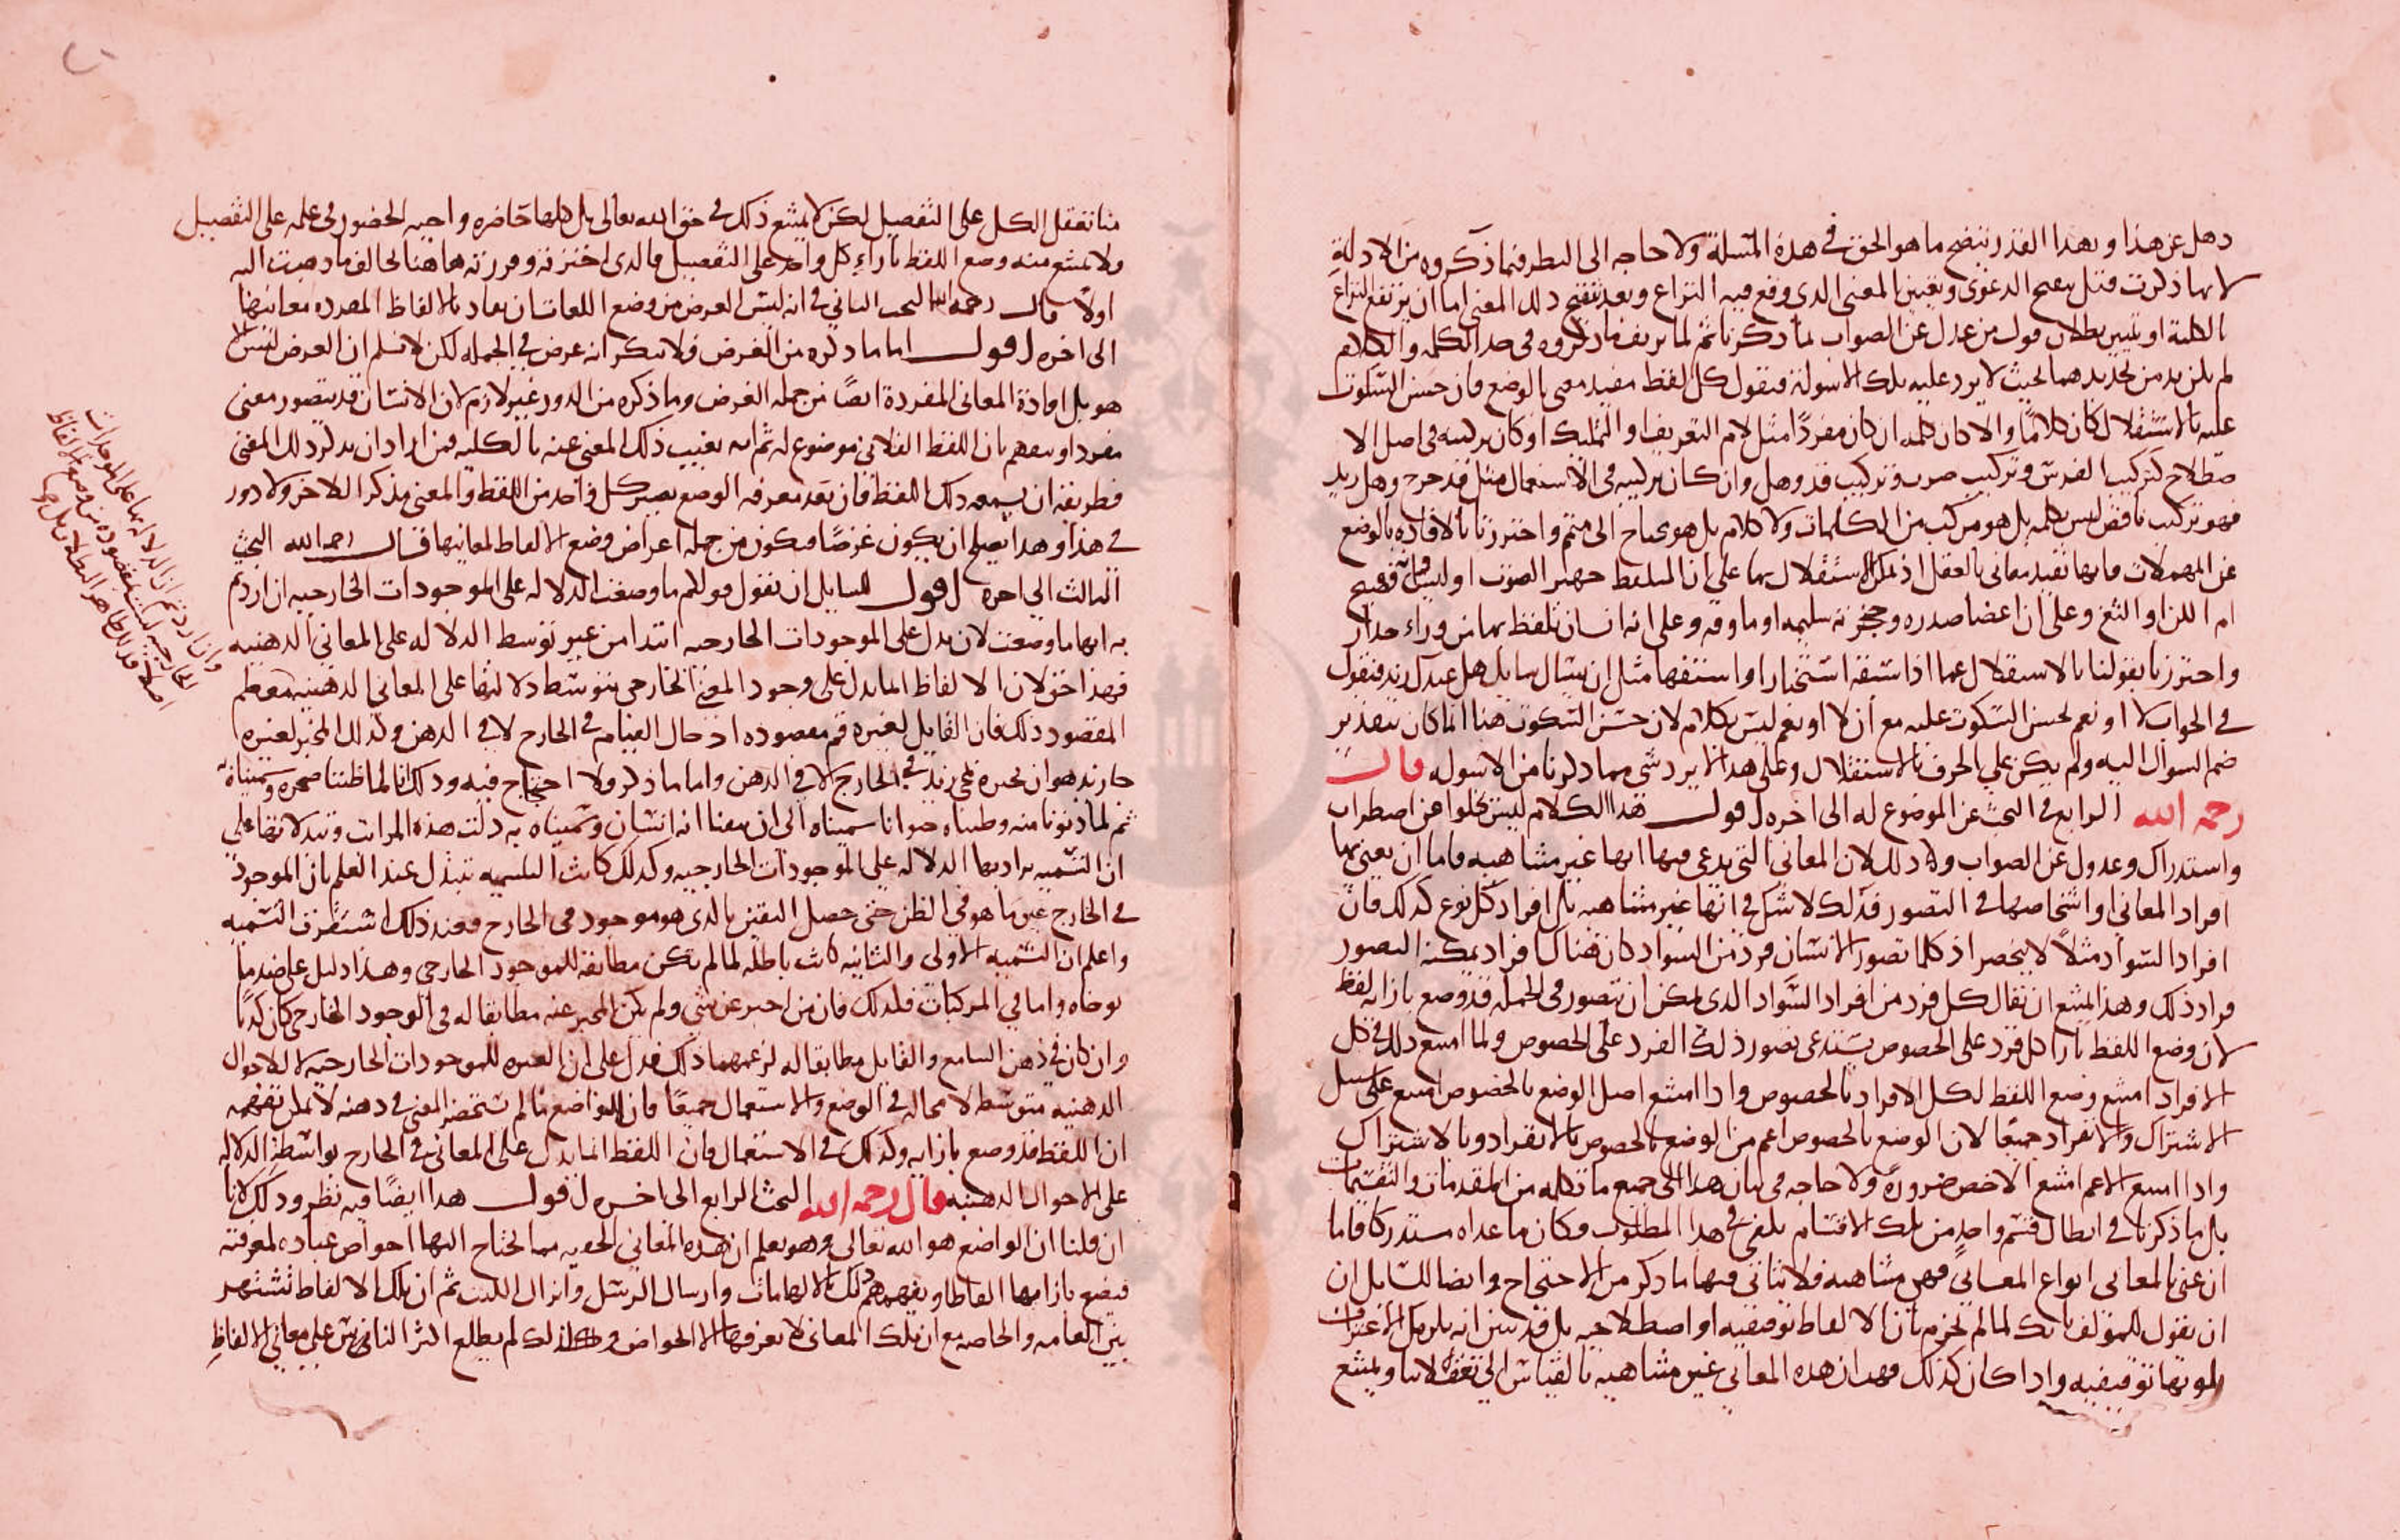 ذهل عن هذا وبهذا القدر يتضح ما هو الحق في هذه المسألة ولا حاجة الى النظر فيما ذكروه من الادلة
لانها ذكرت قبل تنقيح الدعوى وتعيين المعنى الذي وقع فيه النزاع وبعد تنقيح ذلك المعنى اما ان يرتفع النزاع
بالكلية او تبين بطلان قول من عدل عن الصواب لما ذكرنا ثم لما تزيف ما ذكروه في حد الكلمة والكلام
لم يكن بد من تحديدهما بحيث لا يرد عليه تلك الاسولة فنقول كل لفظ مفيد معنى بالوضع فان حسن السكوت
عليه بالاستقلال كان كلاما والا كان كلمة ان كان مفردا مثل لام التعريف او التمليك او كان تركيبه في اصل الا
صطلاح كتركيب الفرس وتركيب ضرب وتركيب قد وهل وان كان تركيبه في الاستعمال مثل قد خرج وهل زيد
فهو تركيب ناقص ليس بكلمة بل هو مركب من الكلمات ولا كلام بل هو محتاج الى متمم واحترزنا بالافادة بالوضع
عن المهملات فانها تفيد معاني بالعقل اذ يمكن الاستقلال بها على ان المتلفظ جهير الصوت او ليس وانه فصيح
ام الكن او الثغ وعلى ان اعضا صدره وحنجرته سليمة او ماوفة وعلى انه انسان تلفظ بها من وراء جدار
واحترزنا بقولنا بالاستقلال عما اذا سبقه استخبارا واستفهاما مثل ان يسال سايل هل عندك زيد فنقول
في الجواب لا او نعم يحسن السكوت عليه مع ان لا او نعم ليس بكلام لان حسن السكوت هنا انما كان بتقدير
ضم السوال اليه ولم يكن على الحرف بالاستقلال وعلى هذا لا يرد شي مما ذكرنا من الاسولة قال
رحمه الله الرابع في البحث عن الموضوع له الى اخره اقول هذا الكلام ليس يخلوا عن اضطراب
واستدراك وعدول عن الصواب وذلك لان المعاني التي يدعى فيها انها غير متناهية فاما ان يعني بها
افراد المعاني او اشخاصها في التصور فذلك لا شك في انها غير متناهية بل افراد كل نوع كذلك فان
افراد السواد مثلا لا ينحصر اذ كلما تصور الانسان فرد من السواد كان هناك افراد يمكنه التصور
وراء ذلك وهذا يمتنع ان يقال كل فرد من افراد السواد الذي يمكن ان يتصور في الجملة قد وضع بازائه لفظ
لان وضع اللفظ بازا كل فرد على الخصوص يستدعي تصور ذلك الفرد على الخصوص ولما امتنع ذلك في كل
الافراد امتنع وضع اللفظ لكل الافراد بالخصوص واذا امتنع اصل الوضع بالخصوص امتنع على سبيل
الاشتراك والانفراد جميعا لان الوضع بالخصوص اعم من الوضع بالخصوص بالانفراد وبالاشتراك
واذا امتنع الاعم امتنع الاخص ضرورة ولا حاجة في بيان هذا الى جميع ما تكلمه من المقدمات والتقسيمات
بل ما ذكرنا في ابطال قسم واحد من تلك الاقسام يكفي في هذا المطلوب وكان ما عداه مستدركا فاما
ان عنى بالمعاني انواع المعاني فهي متناهية فلا تتاتى فيها ما ذكر من الاحتجاج وايضا للسايل ان
ان يقول للمؤلف بانك لما لم تجزم بان الالفاظ توقيفية او اصطلاحية بل قد تبين انه يمكن الاعتراف
بكونها توقيفية واذا كان كذلك فهب ان هذه المعاني غير متناهية بالقياس الى تعقلاتنا ويمتنع
منا تعقل الكل على التفصيل لكن لا يمتنع ذلك في حق الله تعالى بل كلها حاضرة واجبة الحضور في علمه على التفصيل
ولا يمتنع منه وضع اللفظ بازاء كل واحد على التفصيل فالذي اخترته وقررته هاهنا يخالف ما ذهبت اليه
اولا قال رحمه الله البحث الثاني في انه ليس الغرض من وضع اللغات ان يفاد بالالفاظ المفردة معانيها
الى اخره اقول اما ما ذكره من الغرض فلا ننكر انه غرض في الجملة لكن لا نسلم ان الغرض ليس الا
هو بل افادة المعاني المفردة ايضا من جملة الغرض وما ذكره من الدور غير لازم لان الانسان قد يتصور معنى
مفردا ويفهم بان اللفظ الفلاني موضوع له ثم انه يغيب ذلك المعنى عنه بالكلية فمن اراد ان يذكر ذلك المعنى
فطريقه ان يسمعه ذلك اللفظ فان بعد معرفة الوضع يصير كل واحد من اللفظ والمعنى مذكرا للاخر ولا دور
في هذا وهذا يصلح ان يكون غرضا فيكون من جملة اغراض وضع الالفاظ لمعانيها قال رحمه الله البحث
الثالث الى اخره اقول للسايل ان يقول قولكم ما وضعت للدلالة على الموجودات الخارجية ان اردتم
به انها ما وضعت لان تدل على الموجودات الخارجية ابتدا من غير توسط الدلالة على المعاني الذهنية
فهذا حق لان الالفاظ انما يدل على وجود المعنى الخارجي بتوسط دلالتها على المعاني الذهنية معظم
المقصود ذلك فان القايل لغيره قم مقصوده ادخال القيام في الخارج لا في الذهن وكذلك المخبر لغيره
جا زيد هو ان يخبره بمجي زيد في الخارج لا في الذهن واما ما ذكر ولا احتجاج فيه وذلك انا لما ظننا صخرة وسميناه به
ثم لما دنونا منه وظنناه حيوانا سميناه الى ان تيقنا انه انسان وسميناه به دلت هذه المرات وتبدلاتها على
ان التسمية يراد بها الدلالة على الموجودات الخارجية وكذلك كانت التسمية تبدل عند العلم بان الموجود
في الخارج غير ما هو في الظن حتى حصل اليقين بالذي هو موجود في الخارج فعند ذلك استقرت التسمية
واعلم ان التسمية الاولى والثانية كانت باطلة لما لم تكن مطابقة للموجود الخارجي وهذا دليل على ضد ما
توخاه واما في المركبات فكذلك فان من اخبر عن شي ولم يكن المخبر عنه مطابقا له في الوجود الخارجي كان كذبا
وان كان في ذهن السامع والقايل مطابقا له لزعمهما ذلك فدل على ان العبرة للموجودات الخارجية الا لاحوال
الذهنية متوسط لا محالة في الوضع والاستعمال جميعا فان الواضع ما لم يستحضر المعنى في ذهنه لا يمكن تفهيمه
ان اللفظ قد وضع بازايه وكذلك في الاستعمال فان اللفظ انما يدل على المعاني في الخارج بواسطة الدلالة
على الاحوال الذهنية قال رحمه الله البحث الرابع الى اخره اقول هذا ايضا فيه نظر وذلك لانا
ان قلنا ان الواضع هو الله تعالى وهو يعلم ان هذه المعاني الخفية مما يحتاج اليها خواص عباده لمعرفته
فيضع بازايها الفاظا ويفهمهم ذلك بالالهامات وارسال الرسل وانزال الكتب ثم ان تلك الالفاظ تشتهر
بين العامة والخاصة مع ان تلك المعاني لا يعرفها الا الخواص وكذلك لم يطلع اكثر الناس على معاني الالفاظ
وان اردتم ان الدلالة بها على الموجودات
الخارجية ليست مقصودة من وضع الالفاظ
اصلا فذلك ظاهر البطلان